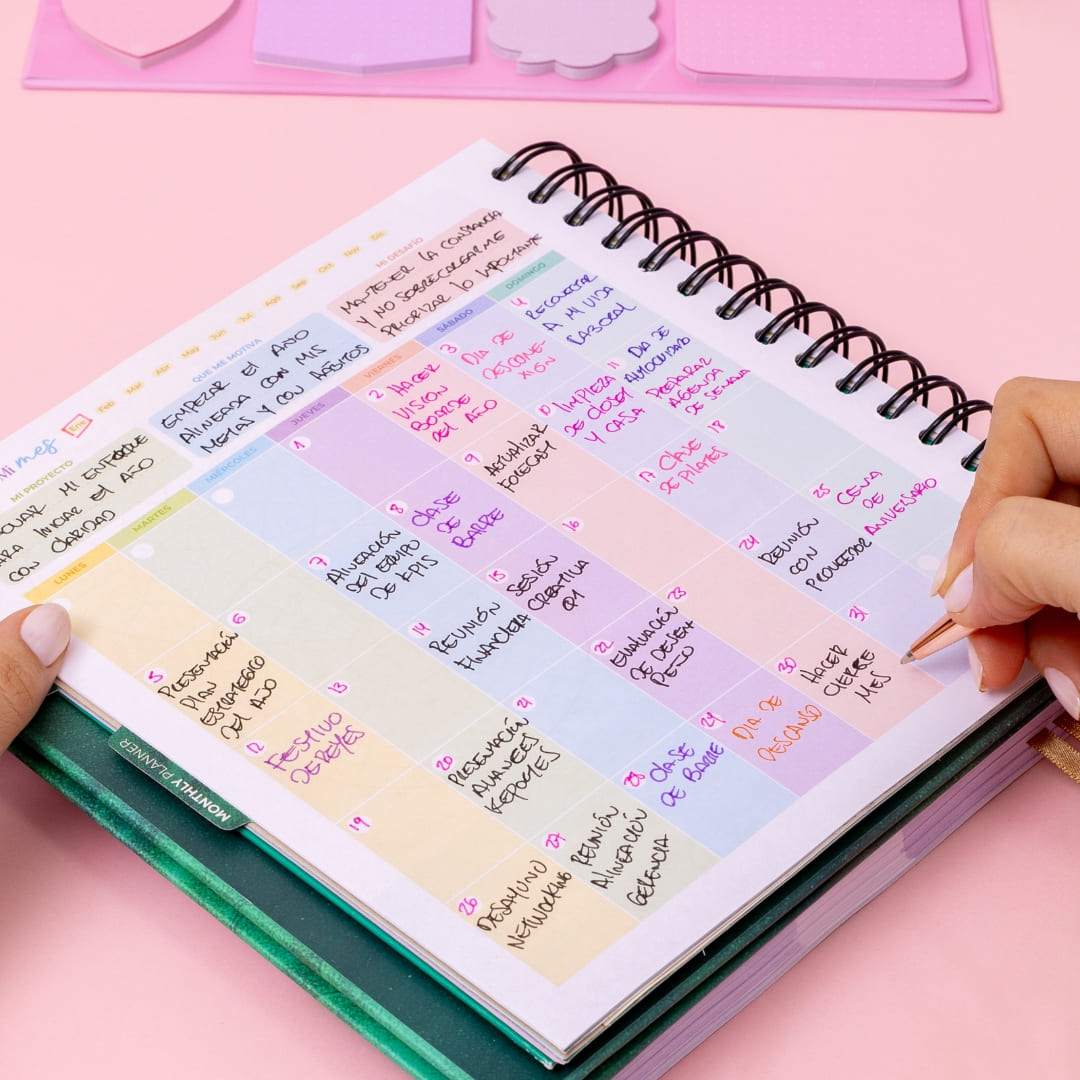 Mi mes
Ene
Feb
Mar
Abr
May
Jun
Jul
Ago
Sep
Oct
Nov
Dic
MI PROYECTO
MI ENFOQUE
PARA INICIAR EL AÑO
CON CLARIDAD
QUE ME MOTIVA
EMPEZAR EL AÑO
ALINEADA CON MIS
METAS Y CON HÁBITOS
MI DESAFÍO
MANTENER LA CONSTANCIA
Y NO SOBRECARGARME
PRIORIZAR LO IMPORTANTE
LUNES
MARTES
MIÉRCOLES
JUEVES
VIERNES
SÁBADO
DOMINGO
1
2 HACER
VISION
BOARD
DEL AÑO
3 DIA DE
DESCONE-
XIÓN
4 RECONECTAR
A MI VIDA
LABORAL
5 PRESENTACIÓN
PLAN
ESTRATEGICO
DEL AÑO
6
7 ALINEACIÓN
DEL EQUIPO
DE KPIS
8 CLASE
DE
BARRE
9 ACTUALIZAR
FORECAST
10 LIMPIEZA
DE CLOSET
Y CASA
11 DIA DE
AUTOCUIDADO
PREPARAR
AGENDA
DE SEMANA
12 FESTIVO
DE REYES
13
14 REUNIÓN
FINANCIERA
15 SESIÓN
CREATIVA
Q1
16
17 CLASE
DE PILATES
18
19
20 PRESENTACIÓN
AVANCES
REPORTES
21
22 EVALUACIÓN
DE DESEM
PEÑO
23
24 REUNIÓN
CON
PROVEEDOR
25 CENA
DE
ANIVERSARIO
26 DESAYUNO
NETWORKING
27 REUNIÓN
ALINEACIÓN
GERENCIA
28 CLASE
DE BARRE
29 DIA DE
DESCANSO
30 HACER
CIERRE
MES
31
MONTHLY PLANNER